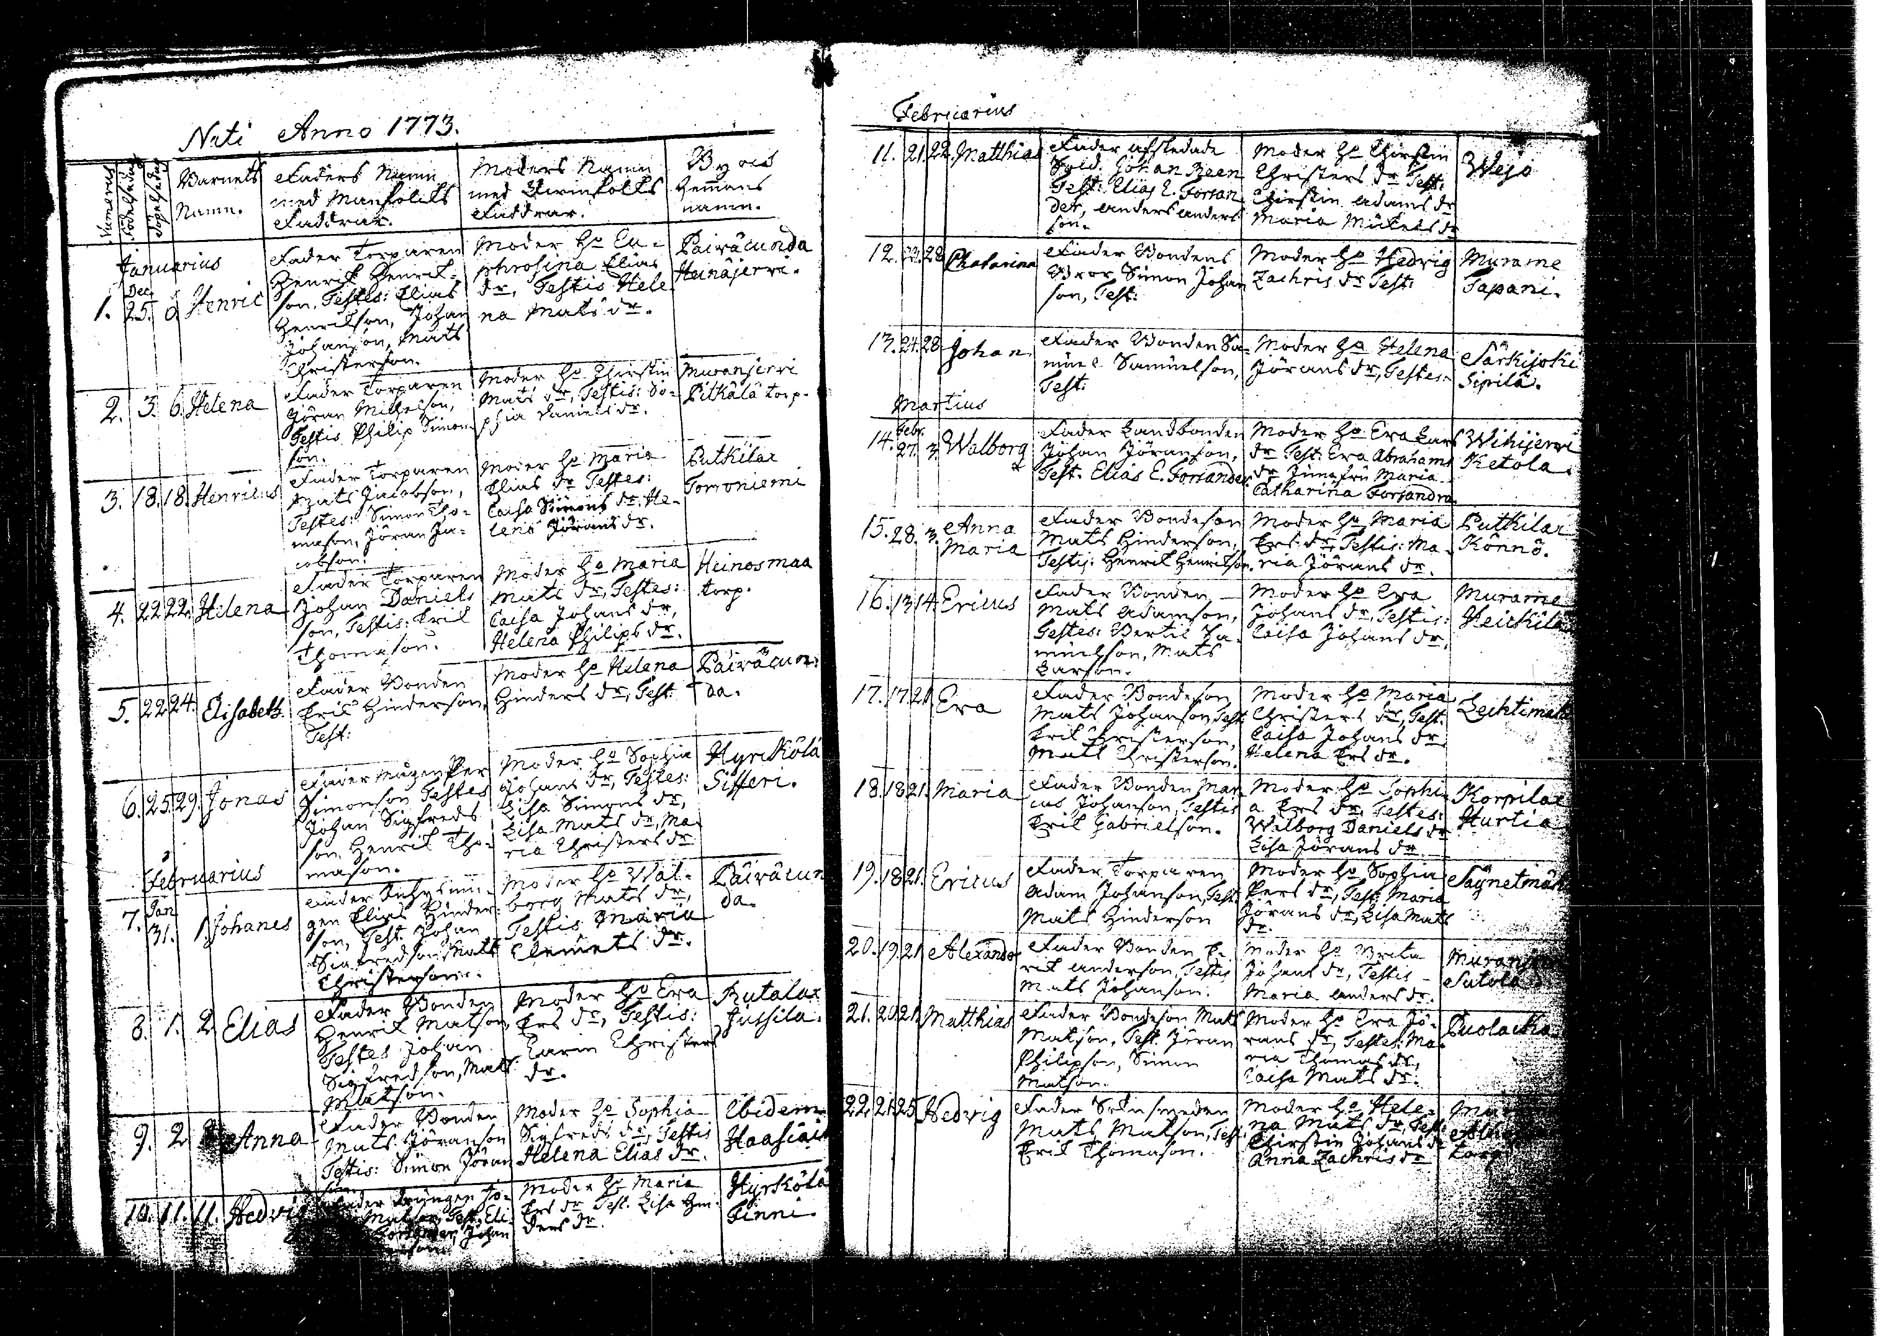 Nati Anno 1773.
Numerus
Födelsedag
Döpelsedag
Barnets
Namn.
Faders Namn
med Manfolks
Faddrar.
Moders Namn
med Qwinfolks
Faddrar.
Byars
Hemans
namn.
Januarius
1. Dec. 25. 6 Henric
Fader Torparen
Henrik Henrik-
son, Testes: Elias
Henrikson, Johan
Johanson, Mats
Christerson.
Moder Ho Eu-
phrosina Elias
dr, Testis Hele
na Mats dr.
Päiväcunda
Heinäjerri.
2. 3. 6. Helena
Fader Torparen
Göran Michelson,
Testis Philip Simon
son.
Moder Ho Chirstin
Mats dr, Testis: So-
phia Daniels dr.
Muranjerri
Pitkälä torp.
3. 18. 18. Henricus
Fader Torparen
Mats Jacobson,
Testes: Simon Tho-
mason, Jöran Ja-
cobson.
Moder Ho Maria
Elias dr Testes:
Caisa Simons dr, He-
lena Jörans dr.
Putkilax
Torroniemi
4. 22. 22. Helena
Fader Torparen
Johan Daniels
son, Testis: Erik
Thomason.
Moder Ho Maria
Mats dr, Testes:
Caisa Johans dr,
Helena Philips dr.
Heinosmaa
torp.
5. 22. 24. Elisabeth
Fader Bonden
Eric Hinderson,
Test:
Moder Ho Helena
Hinders dr, Test:
Päiväcun-
da.
6. 25. 29. Jonas
Fader Mågen Per
Simonson Testes
Johan Sigfreds
son, Henrik Tho-
mason.
Moder Ho Sophia
Johans dr, Testes:
Lisa Simons dr,
Lisa Mats dr, Ma
ria Christers dr
Hyrckölä
Sifferi.
Februarius
7. Jan 31. 1. Johanes
Fader Inhysmn
gen Elias Hinder
son, Test. Johan
Sigfredson, Mats
Christerson.
Moder Ho Wal-
borg Mats dr,
Testis Maria
Clemets dr.
Päiväcun
da.
8. 1. 2. Elias
Fader Bonden
Henrik Matson,
Testes Johan
Sigfredson, Mats
Matson.
Moder Ho Eva
Ers dr, Testis:
Carin Christers
dr.
Rutalax
Jussila.
9. 2. Anna
Fader Bonden
Mats Jöranson
Testis: Simon Jöran
son
Moder Ho Sophia
Sigfreds dr, Testis
Helena Elias dr.
Ibidem
Haasiain
10. 11. 11. Hedvig
Fader Drängen Jo-
Matson, Test. Eli
Forsander, Johan
Moder Ho Maria
Ers dr Test. Lisa Hin-
ders dr.
Hyrskölä
Pinni.
Februarius
11. 21. 22. Matthias
Fader afskedade
Sold. Johan Reen
Test: Elias E. Forsan
der, Anders Anders
son.
Moder Ho Chirstin
Christers dr Test:
Chirstin Adams dr
Maria Michels dr
Wejo
12. 22. 28. Chatarina
Fader Bondens
Bror Simon Johan
son, Test:
Moder Ho Hedvig
Zachris dr Test:
Murame
Tapani.
13. 24. 28. Johan
Fader Bonden Sa-
muel Samuelson,
Test.
Moder Ho Helena
Jörans dr, Testes:
Särkijoki
Sipilä.
Martius
14. Febr. 27. 3. Walborg
Fader Landbonden
Johan Jöranson,
Test. Elias E. Forsander.
Moder Ho Eva Lars
dr Test. Eva Abrahams
dr Jungfru Maria
Catharina Forsandra
Wihijerri
Ketola.
15. 28. 3. Anna
Maria
Fader Bondeson
Mats Hinderson,
Testis: Henrik Henrikson.
Moder Ho Maria
Ers dr, Testis: Ma-
ria Jörans dr.
Putkilax
Könnö.
16. 13. 14. Ericus
Fader Bonden
Mats Adamson,
Testes: Bertil Sa-
muelson, Mats
Larson.
Moder Ho Eva
Johans dr, Testis:
Caisa Johans dr.
Murame
Heickilä
17. 17. 21. Eva
Fader Bondeson
Mats Johanson, Test.
Erik Christerson,
Mats Christerson.
Moder Ho Maria
Christers dr, Test:
Caisa Johans dr
Helena Ers dr.
Lechtimäki
18. 18. 21. Maria
Fader Bonden Mar
cus Johanson, Testis
Erik Gabrielson.
Moder Ho Sophi
a Ers dr, Testes:
Walborg Daniels dr
Lisa Jörans dr.
Korpilax
Hurtia
19. 18. 21. Ericus
Fader Torparen
Adam Johanson, Test.
Mats Hinderson
Moder Ho Sophia
Pers dr, Test: Maria
Jörans dr, Lisa Mats
dr.
Säynetmäki
20. 19. 21. Alexander
Fader Bonden E-
rik Anderson, Testis
Mats Johanson.
Moder Ho Brita
Johans dr, Testis
Maria Anders dr.
Sutola
21. 20. 21. Matthias
Fader Bondeson Mats
Matson, Test. Jöran
Philipson, Simon
Matson.
Moder Ho Eva Jö-
rans dr, Testes: Ma
ria Thomas dr,
Caisa Mats dr.
Puolacka
22. 21. 25. Hedvig
Fader Sockn smeden
Mats Matson, Test:
Erik Thomason.
Moder Ho Hele-
na Mats dr, Test:
Chirstin Johans dr
Anna Zachris dr
torp